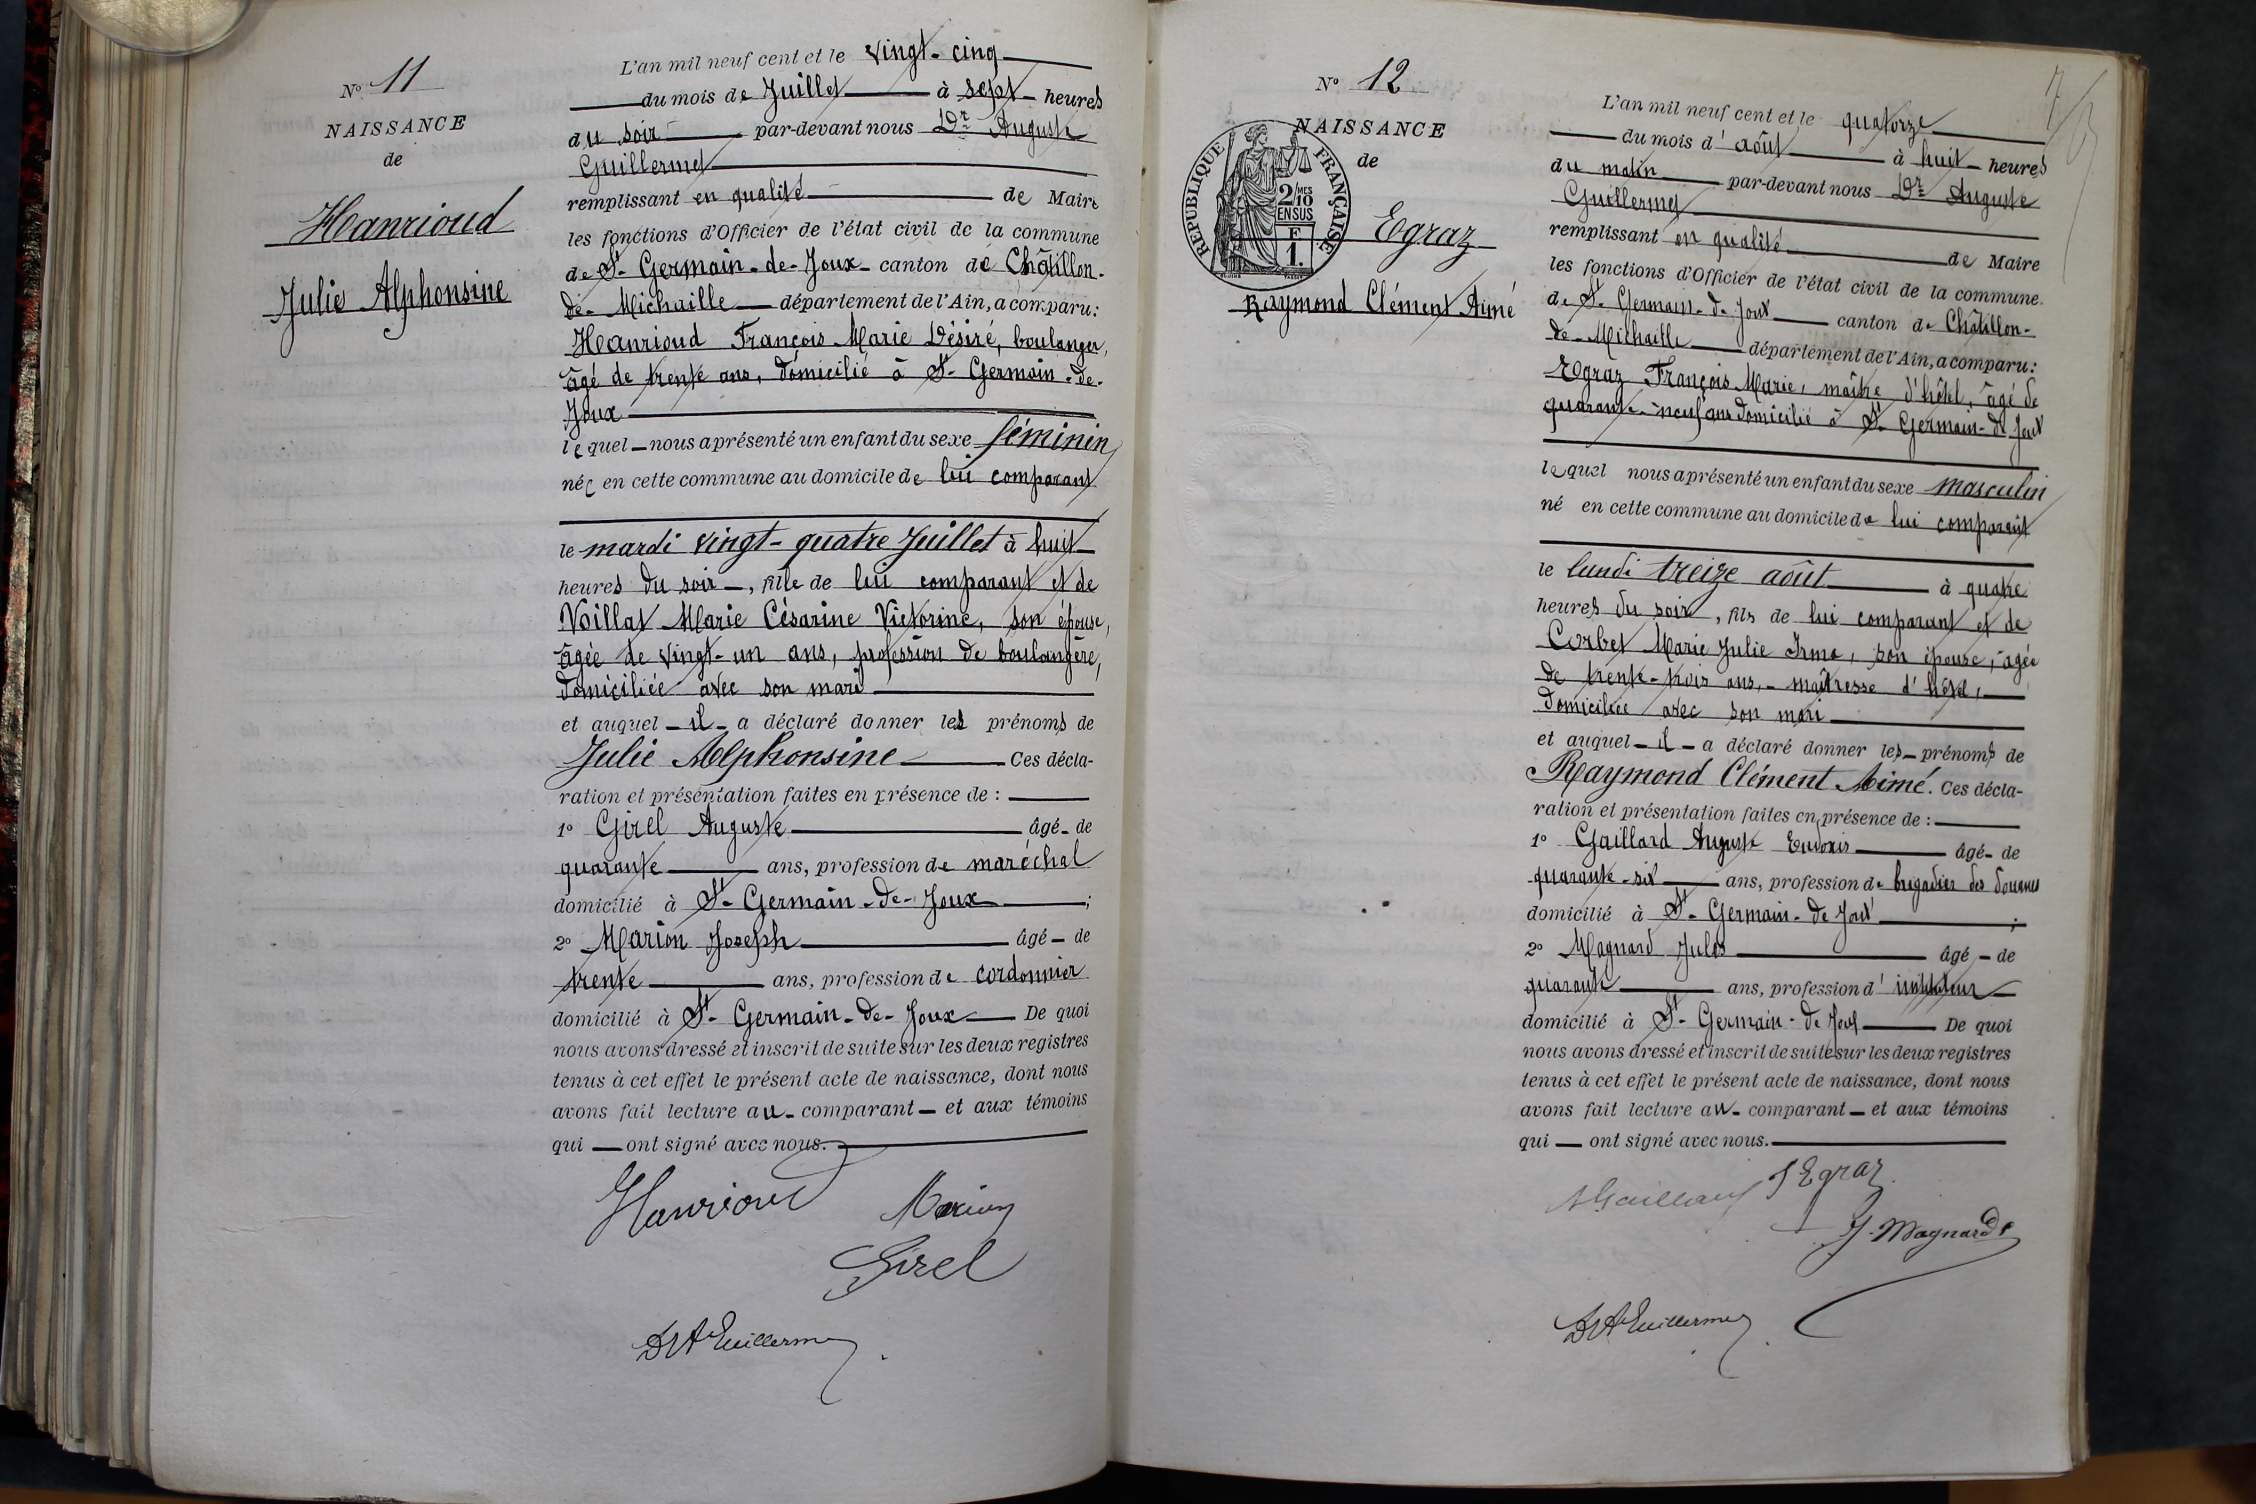 N° 11
NAISSANCE
de
Hanrioud
Julie Alphonsine
L'an mil neuf cent et le vingt-cinq
du mois de Juillet à sept heures
du soir par-devant nous Dr Auguste
Guillermet
remplissant en qualité de Maire
les fonctions d'Officier de l'état civil de la commune
de St-Germain-de-Joux canton de Châtillon-
de-Michaille département de l'Ain, a comparu:
Hanrioud François Marie Désiré, boulanger,
âgé de trente ans, domicilié à St-Germain-de-
Joux
lequel nous a présenté un enfant du sexe féminin
née en cette commune au domicile de lui comparant
le mardi vingt-quatre Juillet à huit
heures du soir, fille de lui comparant et de
Voillat Marie Césarine Victorine, son épouse,
âgée de vingt-un ans, profession de boulangère,
domiciliée avec son mari
et auquel il a déclaré donner les prénoms de
Julie Alphonsine Ces décla-
ration et présentation faites en présence de :
1° Girel Auguste âgé de
quarante ans, profession de maréchal
domicilié à St-Germain-de-Joux ;
2° Marion Joseph âgé de
trente ans, profession de cordonnier
domicilié à St-Germain-de-Joux De quoi
nous avons dressé et inscrit de suite sur les deux registres
tenus à cet effet le présent acte de naissance, dont nous
avons fait lecture au comparant et aux témoins
qui ont signé avec nous.
Hanrioud Marion
Girel
Dr A Guillermet
N° 12
NAISSANCE
de
RÉPUBLIQUE FRANÇAISE
2 MES
10
EN SUS
F
1.
Egraz
Raymond Clément Aimé
L'an mil neuf cent et le quatorze
du mois d'août à huit heures
du matin par-devant nous Dr Auguste
Guillermet
remplissant en qualité de Maire
les fonctions d'Officier de l'état civil de la commune
de St-Germain-de Joux canton de Châtillon-
de-Michaille département de l'Ain, a comparu:
Egraz François Marie, maître d'hôtel, âgé de
quarante-neuf ans domicilié à St-Germain-de Joux
lequel nous a présenté un enfant du sexe masculin
né en cette commune au domicile de lui comparant
le lundi treize août à quatre
heures du soir, fils de lui comparant et de
Corbet Marie Julie Irma, son épouse, âgée
de trente-trois ans, maîtresse d'hôtel,
domiciliée avec son mari
et auquel il a déclaré donner les prénoms de
Raymond Clément Aimé. Ces décla-
ration et présentation faites en présence de :
1° Gaillard Auguste Eudoxis âgé de
quarante-six ans, profession de brigadier des douanes
domicilié à St-Germain-de Joux ;
2° Magnard Jules âgé de
quarante ans, profession d'instituteur
domicilié à St-Germain-de Joux De quoi
nous avons dressé et inscrit de suite sur les deux registres
tenus à cet effet le présent acte de naissance, dont nous
avons fait lecture au comparant et aux témoins
qui ont signé avec nous.
A Gaillard F Egraz
J. Magnard
Dr A Guillermet